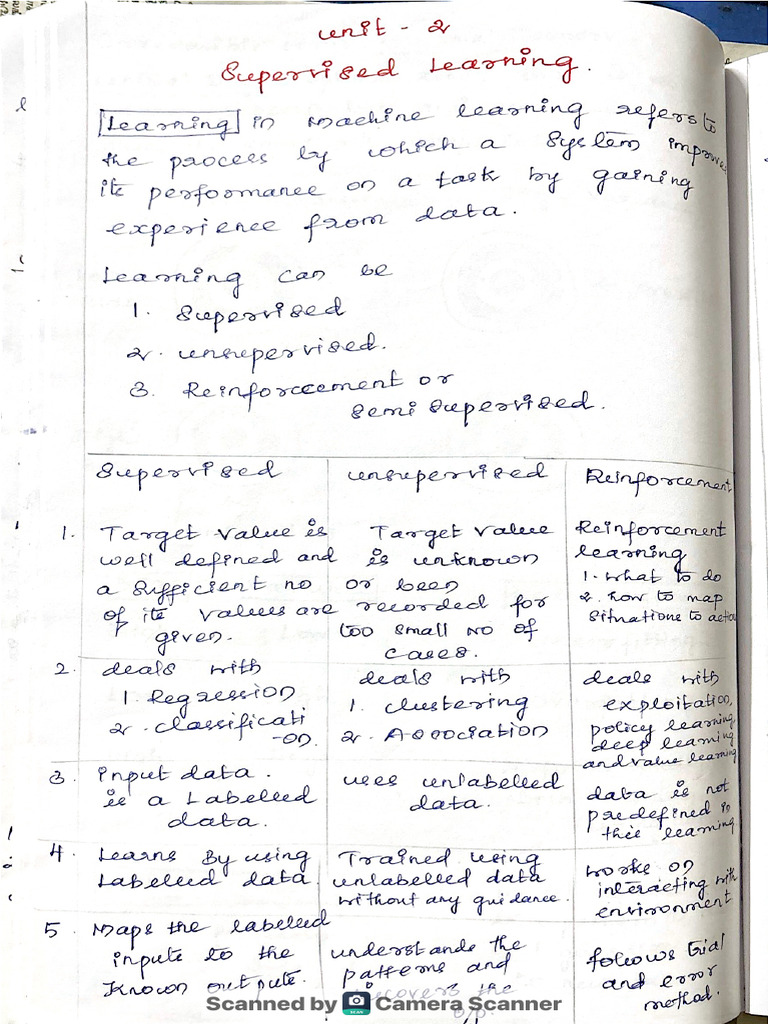 unit - 2
Supervised Learning.
Learning in Machine learning refers to
the process by which a System improves
its performance on a task by gaining
experience from data.
Learning can be
1. Supervised
2. unsupervised.
3. Reinforccement or
Semi Supervised.
Supervised unsupervised Reinforcement
1. Target value is
well defined and
a Sufficient no
of its values are
given.
Target value
is unknown
or been
recorded for
too small no of
cases.
Reinforcement
learning
1. what to do
2. how to map
situations to action
2. deals with
1. Regression
2. classificati
-on.
deals with
1. clustering
2. Association
deals with
exploitation,
policy learning,
deep learning
and value learning
3. input data.
is a Labelled
data.
uses unlabelled
data.
data is not
predefined in
this learning
4. Learns By using
Labelled data.
Trained using
unlabelled data
without any guidance.
works on
interacting with
environment
5. Maps the labelled
inputs to the
known outputs.
understands the
patterns and
discovers the
o/p.
follows trial
and error
method.
Scanned by Camera Scanner